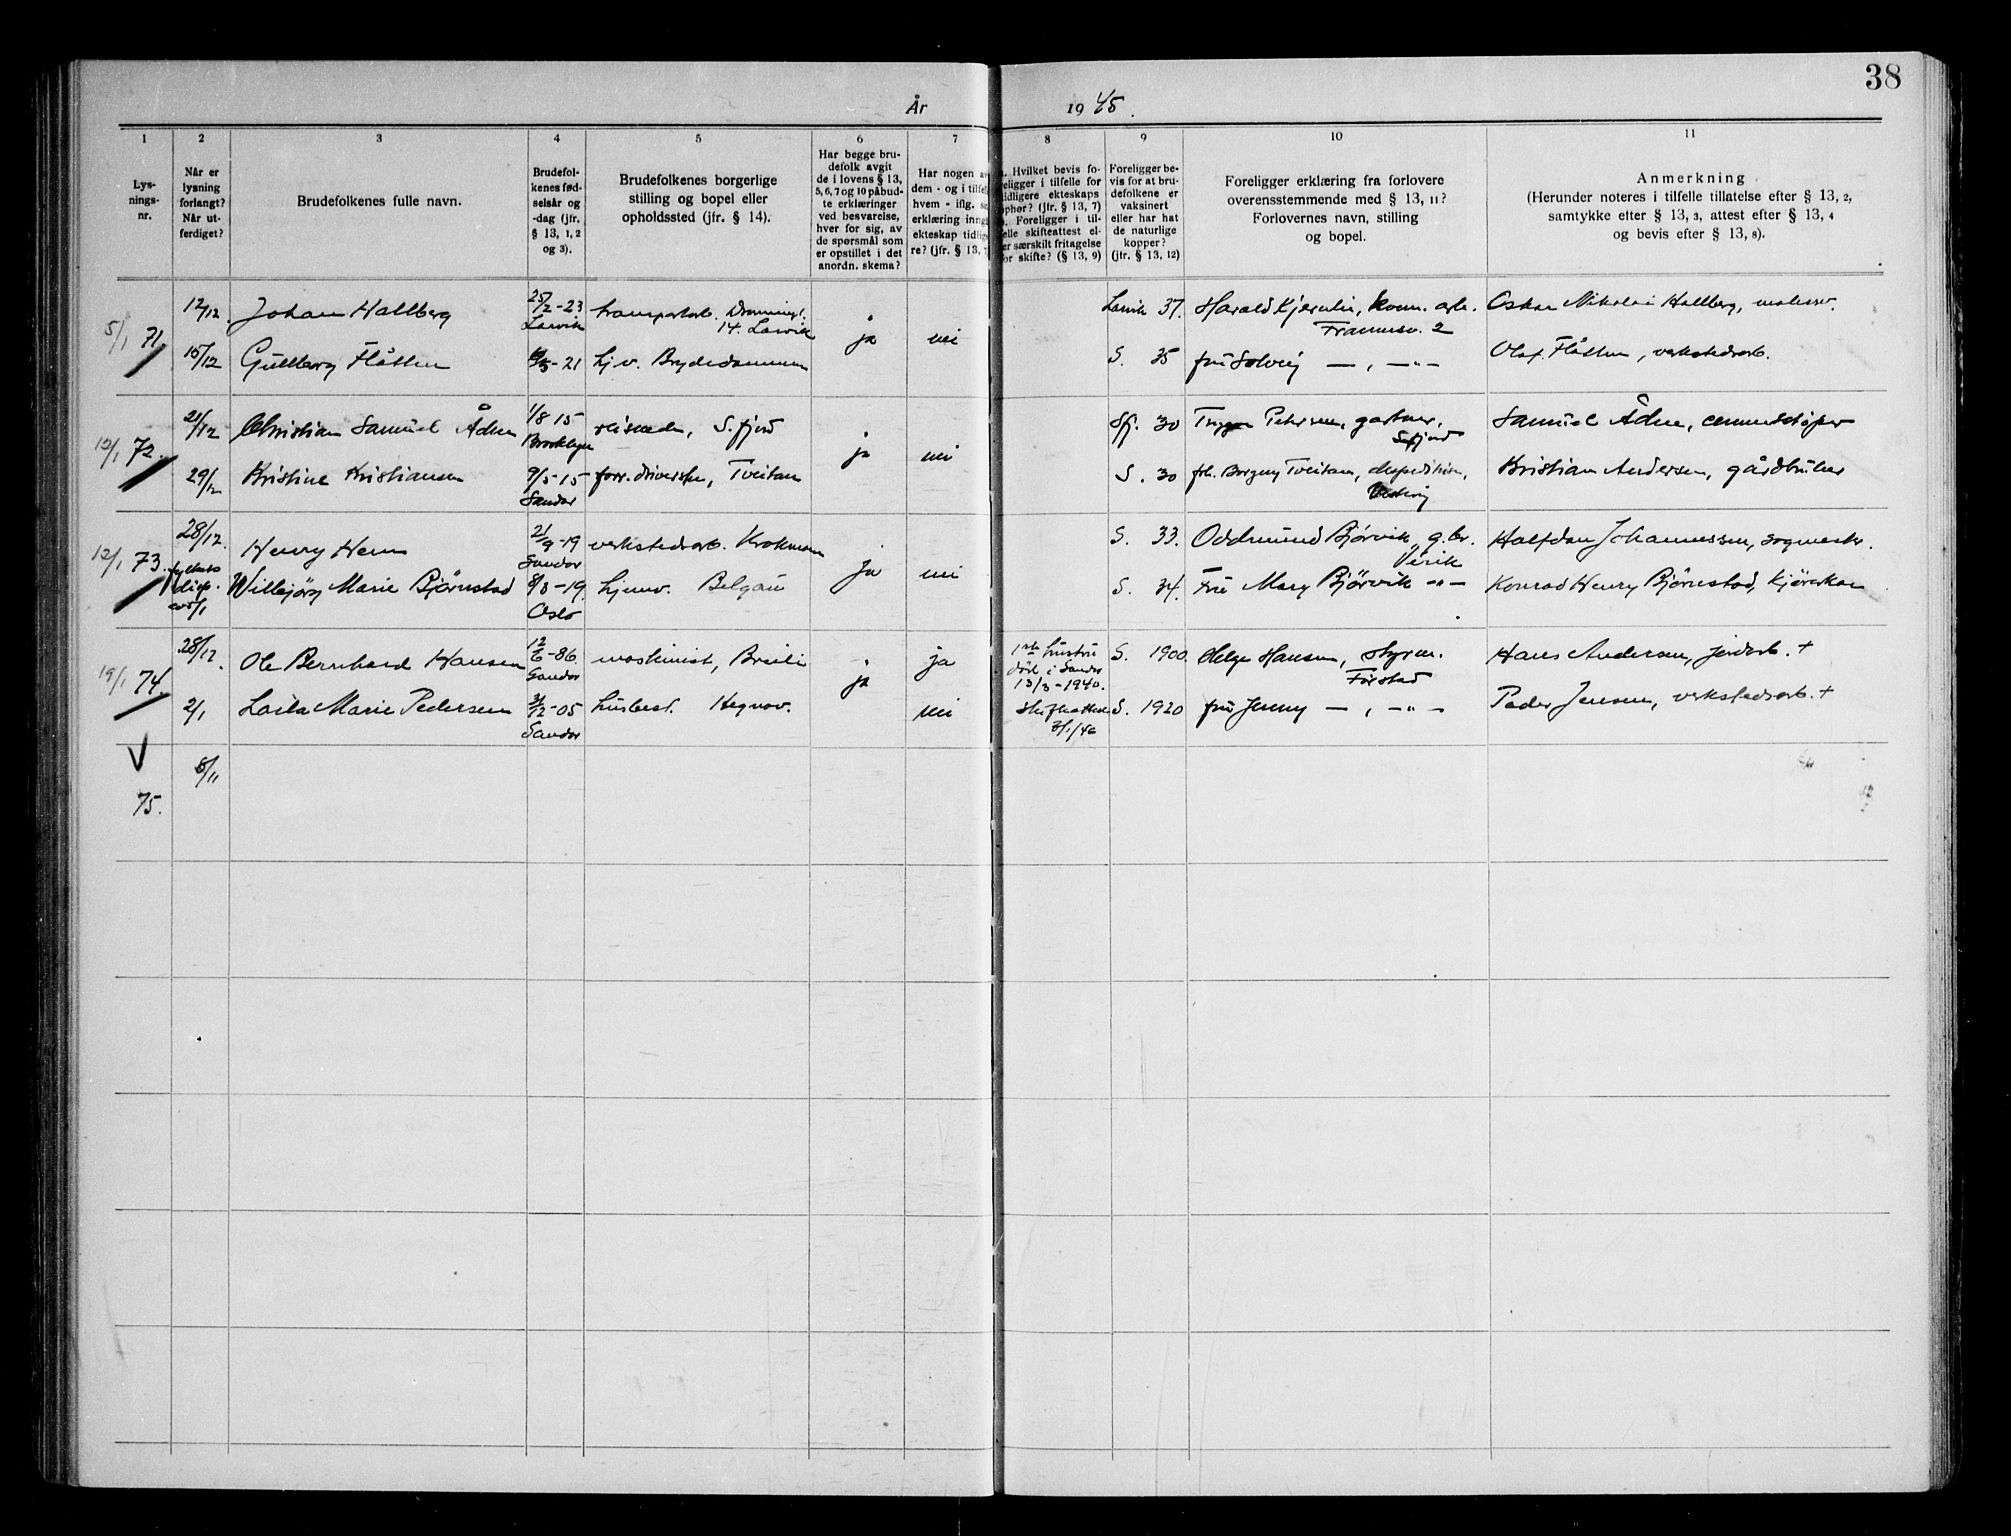 38
År 1945.
1 2 3 4 5 6 7 8 9 10 11
Lys-
nings-
nr.
Når er
lysning
forlangt?
Når ut-
ferdiget?
Brudefolkenes fulle navn.
Brudefol-
kenes fød-
selsår og
-dag (jfr.
§ 13, 1, 2
og 3).
Brudefolkenes borgerlige
stilling og bopel eller
opholdssted (jfr. § 14).
Har begge bru-
defolk avgit
de i lovens § 13,
5, 6, 7 og 10 påbud-
te erklæringer
ved besvarelse,
hver for sig, av
de spørsmål som
er opstillet i det
anordn. skema?
Har nogen av
dem - og i tilfel
hvem - iflg. s
erklæring inng
ekteskap tidlig
re? (jfr. § 13, 7
. Hvilket bevis fo-
religger i tilfelle for
tidligere ekteskaps
ophør? (jfr. § 13, 7)
. Foreligger i til-
felle skifteattest el-
er særskilt fritagelse
for skifte? (§ 13, 9)
Foreligger be-
vis for at bru-
defolkene er
vaksinert
eller har hat
de naturlige
kopper?
(jfr. § 13, 12)
Foreligger erklæring fra forlovere
overensstemmende med § 13, 11?
Forlovernes navn, stilling
og bopel.
Anmerkning
(Herunder noteres i tilfelle tillatelse efter § 13, 2,
samtykke efter § 13, 3, attest efter § 13, 4
og bevis efter § 13, 8).
5/1 71 12/12 Johan Hallberg 25/2-23 Larvik transportarb. Dronningt. 14. Larvik ja nei Larvik 37. Harald Kjernlie, komm. arb. Framnesv. 2 Oskar Nikolai Hallberg, malerm.
15/12 Gullborg Flåtten -21 hj.v. Brydedammen S. 35 fru Solveig — , — " — Olaf Flåtten, verkstedsarb.
12/1 72. 21/12 Christian Samuel Ådne 1/8 15 Brooklyn S.fjord ja nei Sfj. 30 Trygve Petersen, gartner, S.fjord Samuel Ådne, cementstøper
29/12 Kristine Kristiansen 9/5-15 Sandar forr. driverske, Tveitan S. 30 frk. Borgny Tveitan, Kristian Andersen, gårdbruker
12/1 73. 28/12. Henry Hem 21/9-19 Sandar verkstedsarb. Krokmoen ja nei S. 33. Oddmund Bjørvik, g.br. Virik Halfdan Johannessen, sagmester
fylkes disp. av 5/1 Willbjørg Marie Bjørnstad 8/3-19. Oslo hjemv. Belgau S. 34. Fru Mary Bjørvik — " — Konrad Henry Bjørnstad,
19/1 74. 28/12 Ole Bernhard Hansen 12/6-86. Sandar maskinist, Breili ja ja 1ste hustru død i Sandar 13/3-1940. S. 1900. Helge Hansen, styrm. Førstad Hans Andersen, jordarb. +
2/1 Laila Marie Pedersen 3/12-05 Sandar husbest. Hegnav. nei Skifteattest 3/1/46 S. 1920 fru Jenny — , — " — Peder Jensen, verkstedsarb. +
V 75. 8/11